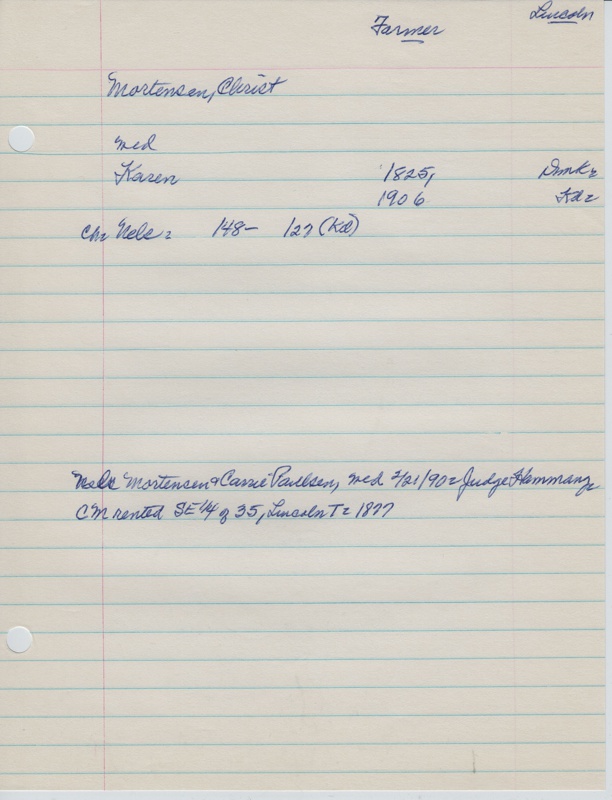 Lincoln
Farmer
Mortensen, Christ
med
Karen 1825, Dmk.
1906 Kd.
Ch. Nels. 148- 127 (Kd)
Nels Mortensen & Carrie Paulsen, med 2/21/90. Judge Hammang.
CM rented SE 1/4 of 35, Lincoln T. 1877